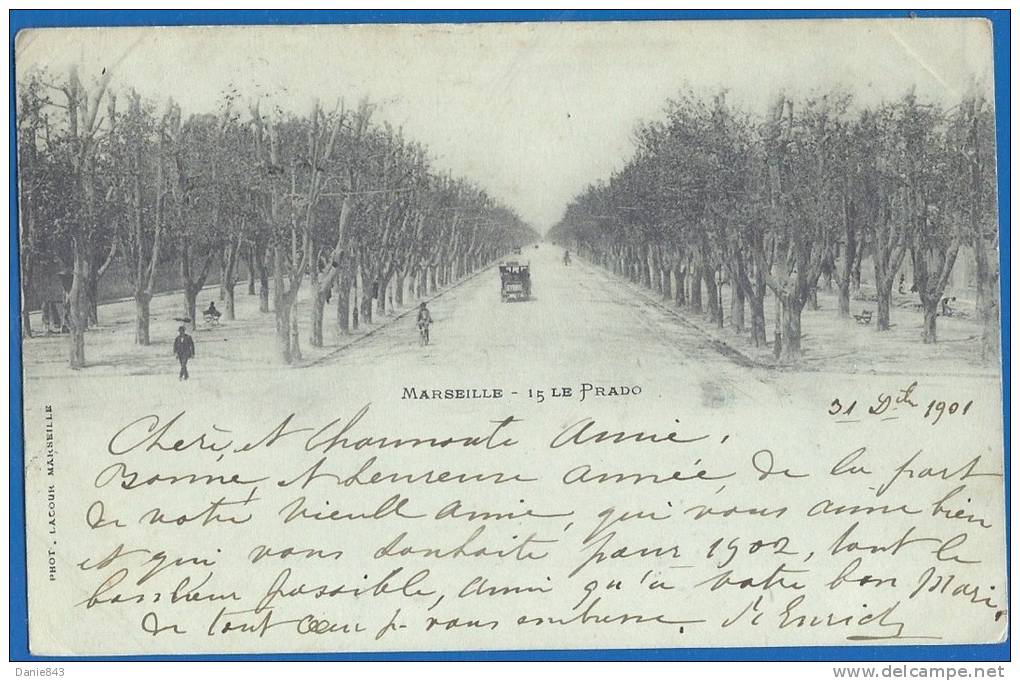 MARSEILLE - 15 LE PRADO
31 Dbre 1901
PHOT. LACOUR MARSEILLE
Chère et Charmante Amie,
Bonne et heureuse année, de la part
de votre vieille amie, qui vous aime bien
et qui vous souhaite pour 1902, tout le
bonheur possible, ainsi qu'à votre bon Mari.
de tout cœur je vous embrasse.
Danie843
http://www.delcampe.net